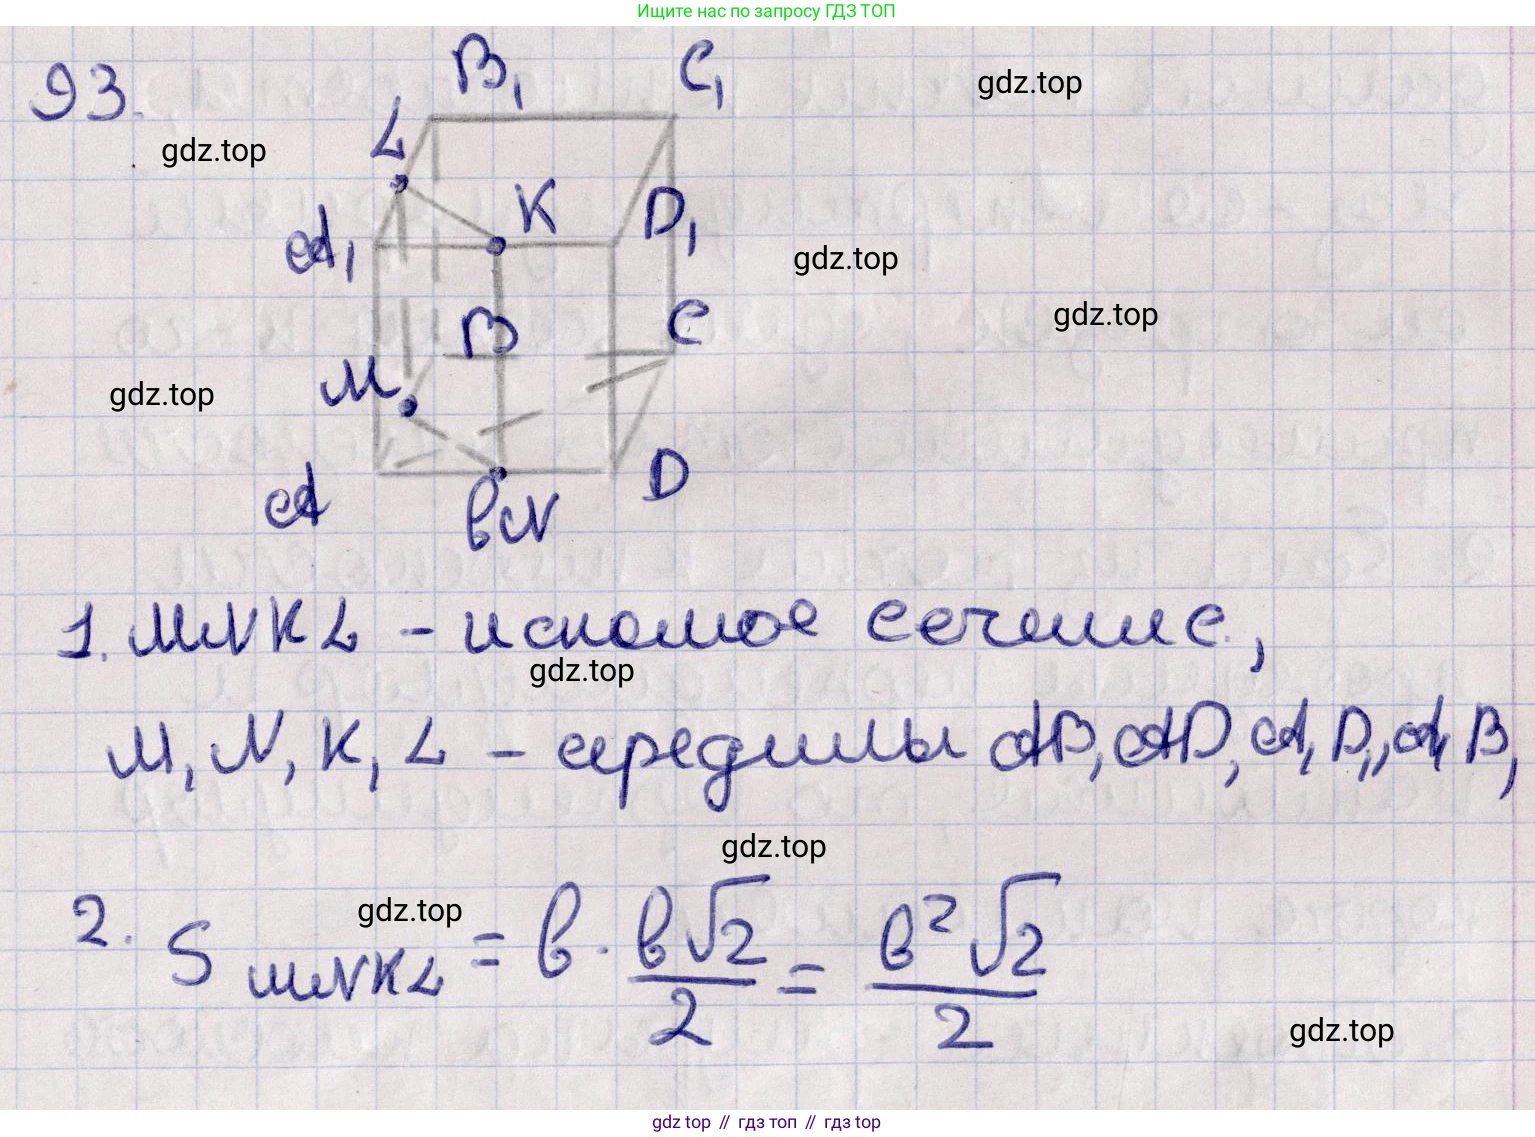 Ищите нас по запросу ГДЗ ТОП
93.
B₁ C₁
gdz.top
L
gdz.top
K
D₁
A₁
gdz.top
B
C
gdz.top
M
gdz.top
A
в N
D
1. MNKL - искомое сечение,
gdz.top
M, N, K, L - середины AB, AD, A₁D₁, A₁B₁
gdz.top
gdz.top
2. S MNKL = в · в√2/2 = в²√2/2
gdz.top
gdz top // гдз топ // гдз.top